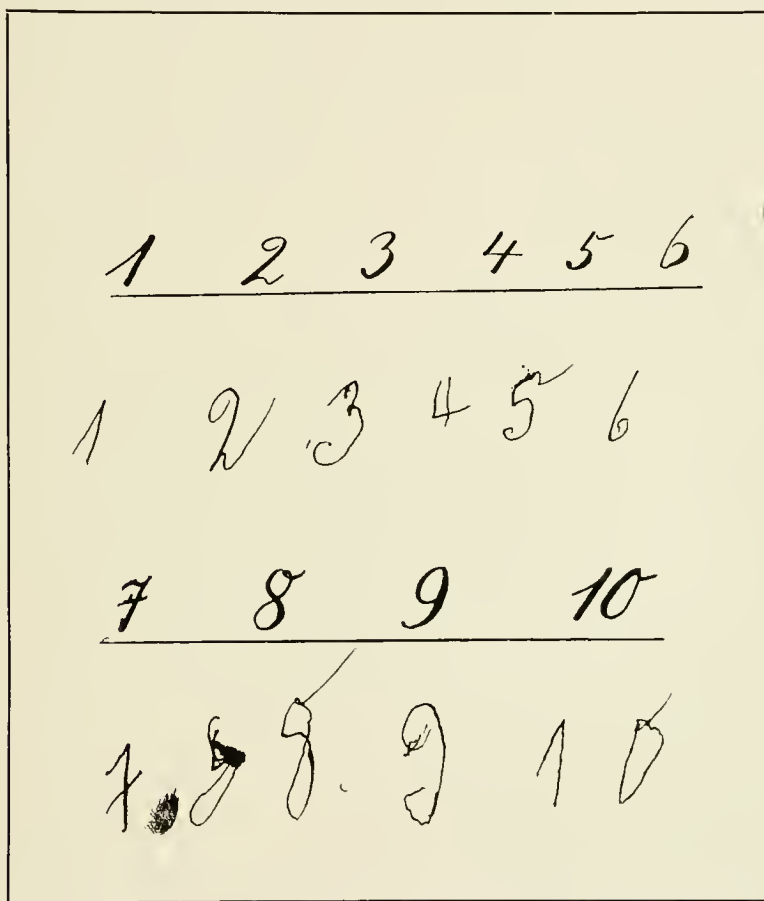 1 2 3 4 5 6
1 2 3 4 5 6
7 8 9 10
7. 8 8. 9 10